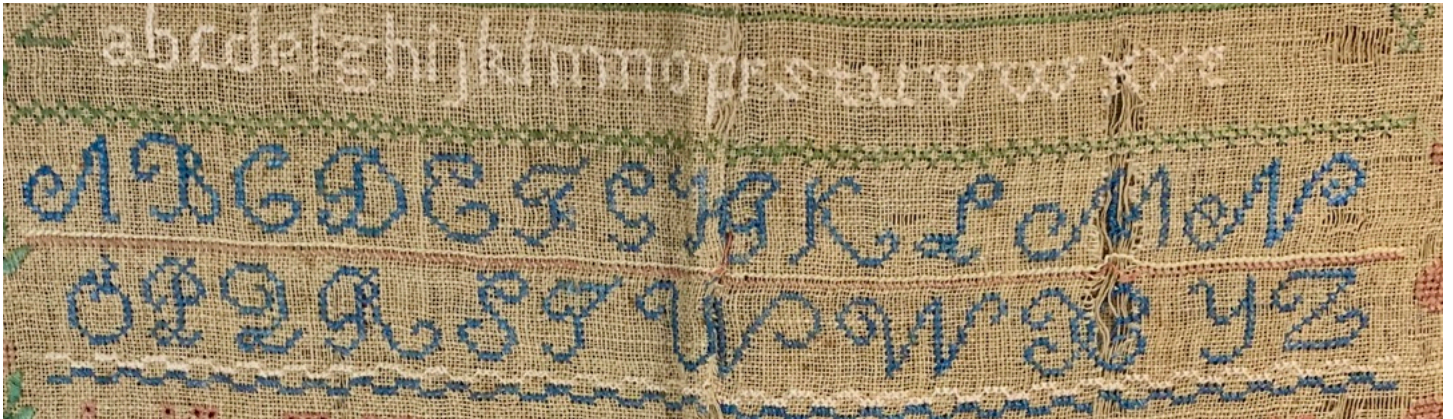 abcdefghijklmnoprstuvwxyz
A B C D E F G H K L M N
O P Q R S T U W X Y Z